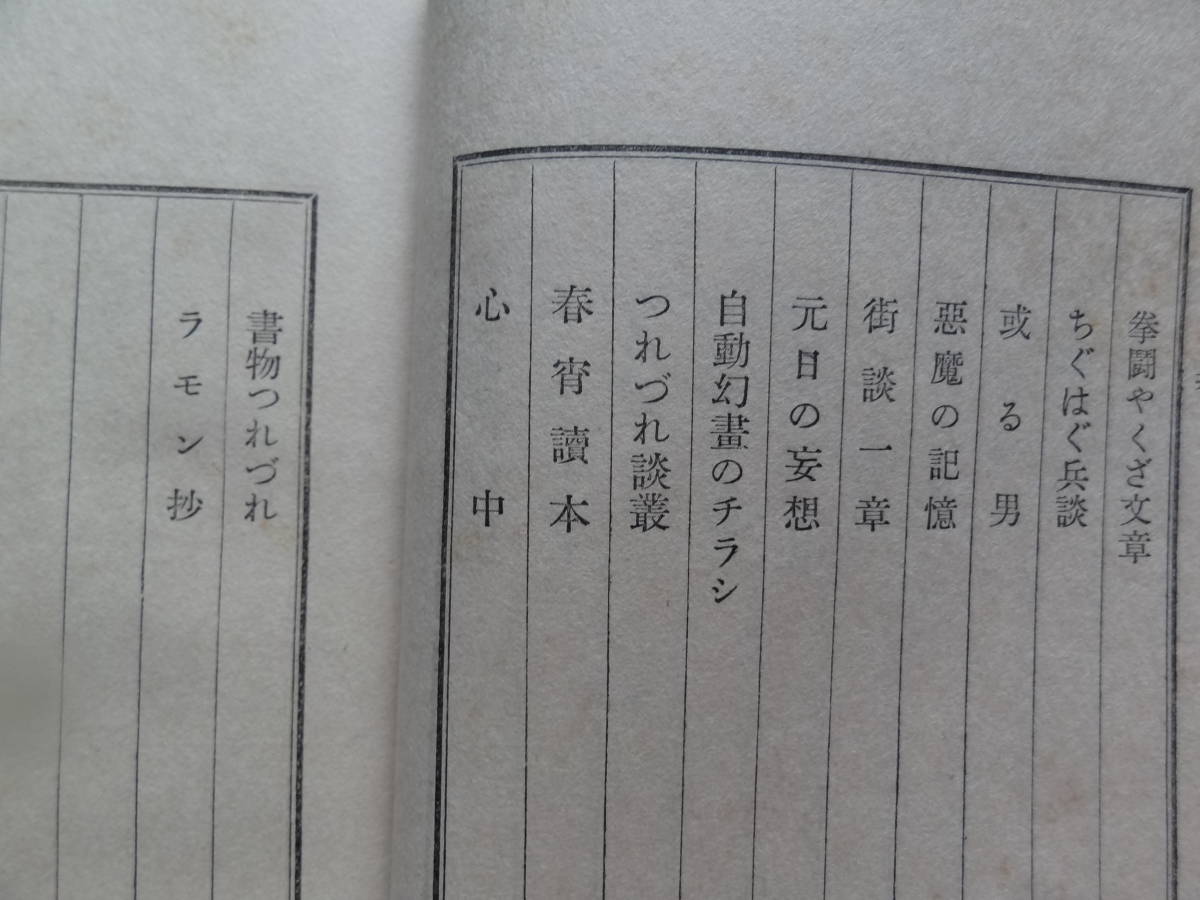 拳鬪やくざ文章
ちぐはぐ兵談
或る男
惡魔の記憶
街談一章
元日の妄想
自動幻畫のチラシ
つれづれ談叢
春宵讀本
心中
書物つれづれ
ラモン抄